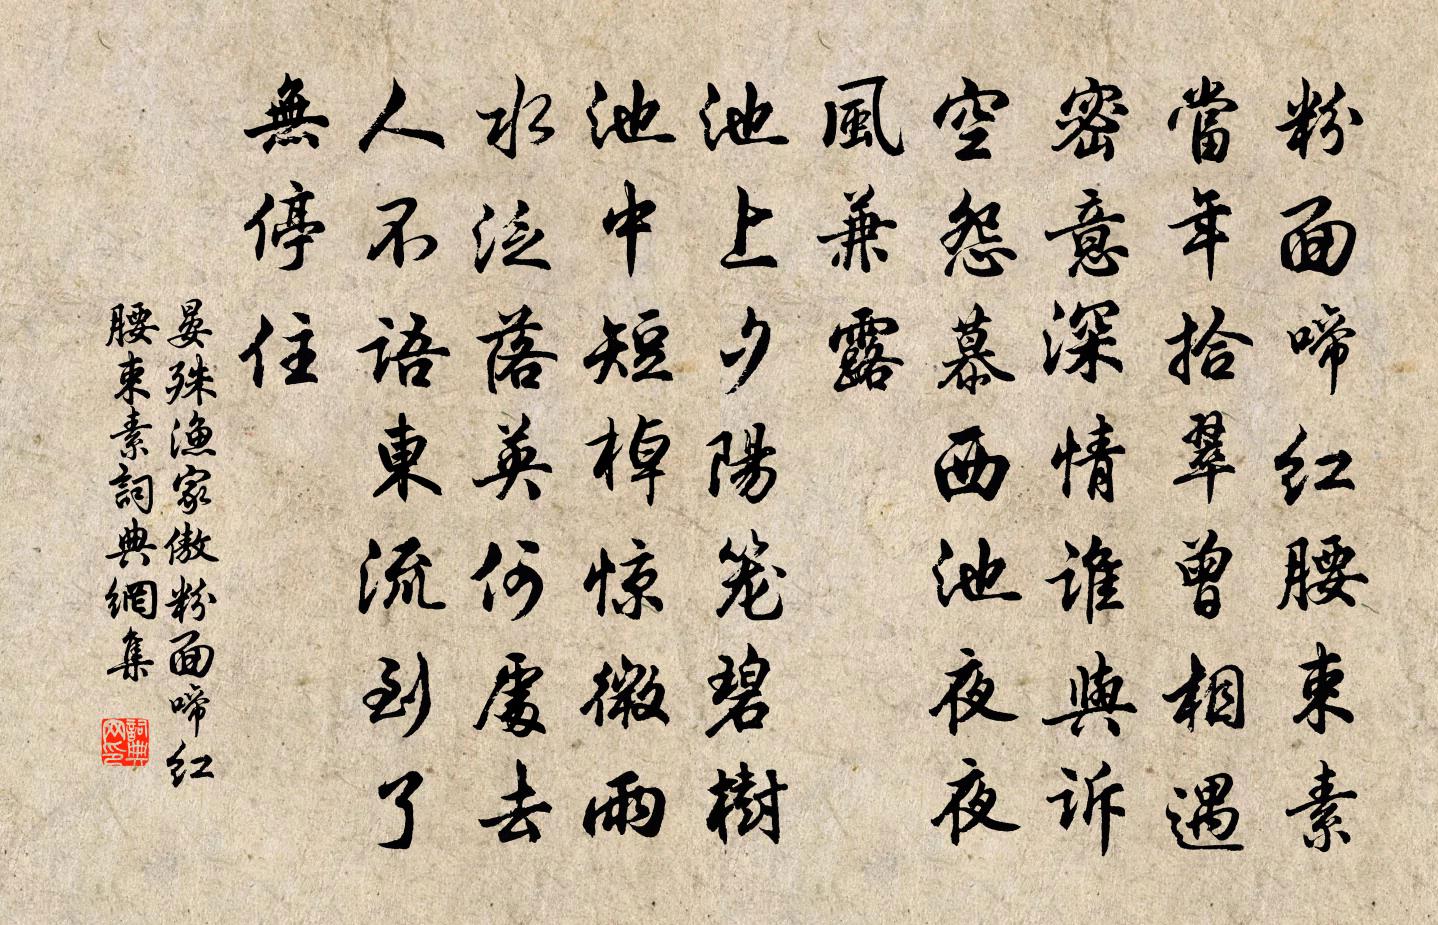 粉面啼红腰束素
當年拾翠曾相遇
密意深情谁與訴
空怨慕西池夜夜
風兼露
池上夕陽笼碧樹
池中短棹惊微雨
水泛落英何處去
人不語東流到了
無停住
晏殊渔家傲粉面啼红
腰束素詞典網集
詞典
网印